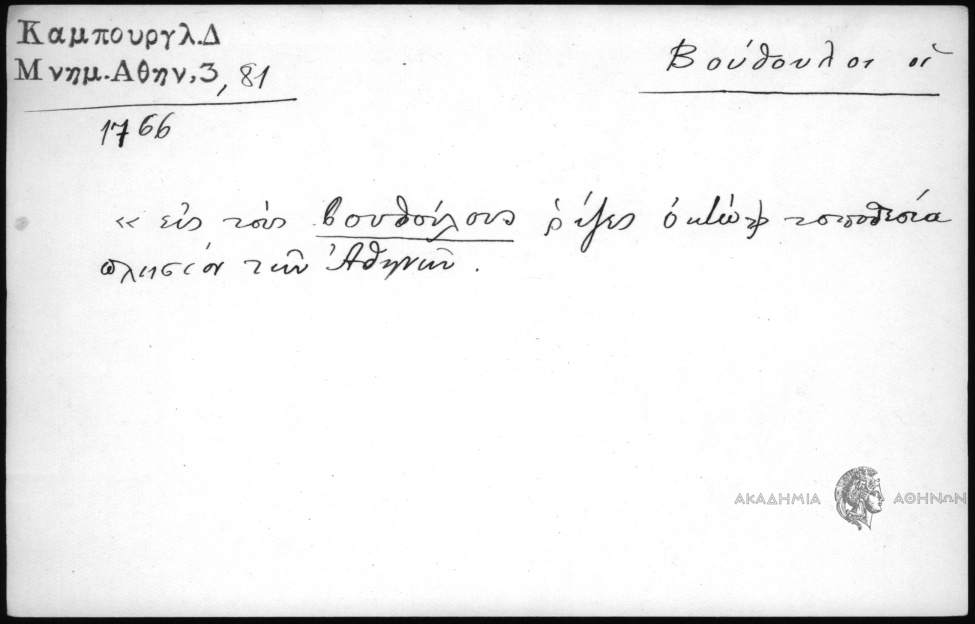 Καμπουργλ.Δ
Μνημ.Αθην,3, 81
Βούθουλοι οἱ
1766
« εἰς τοὺς βουθούλους ῥίζες ὀκτώ» τοποθεσία
πλησίον τῶν Ἀθηνῶν.
ΑΚΑΔΗΜΙΑ ΑΘΗΝΩΝ